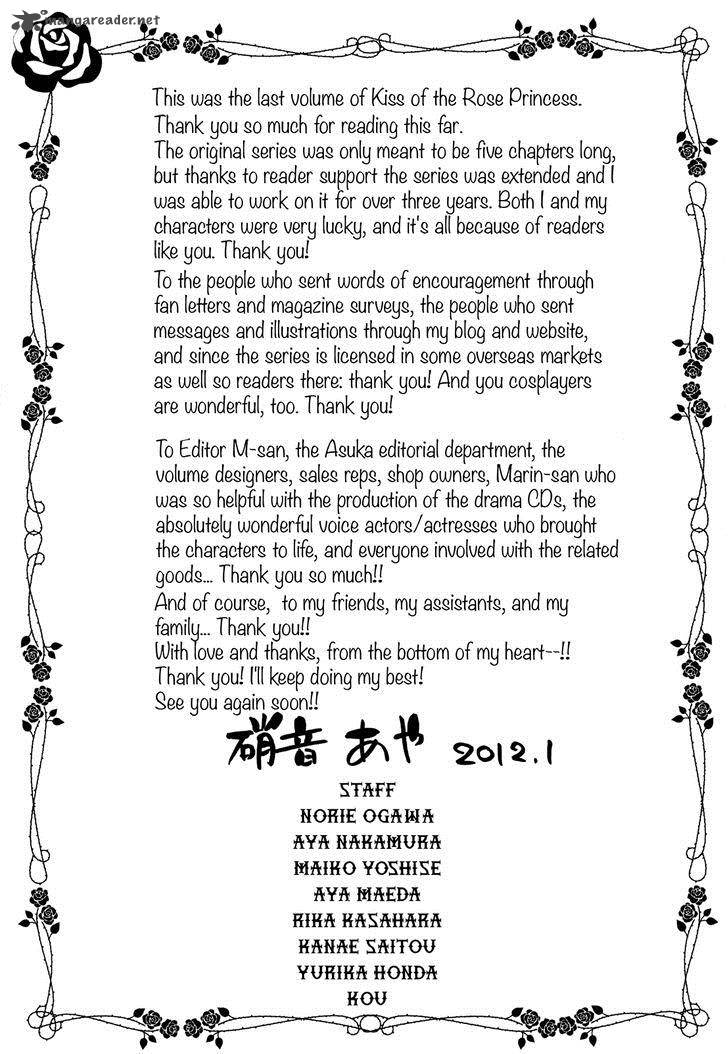 mangareader.net
This was the last volume of Kiss of the Rose Princess.
Thank you so much for reading this far.
The original series was only meant to be five chapters long,
but thanks to reader support the series was extended and I
was able to work on it for over three years. Both I and my
characters were very lucky, and it's all because of readers
like you. Thank you!
To the people who sent words of encouragement through
fan letters and magazine surveys, the people who sent
messages and illustrations through my blog and website,
and since the series is licensed in some overseas markets
as well so readers there: thank you! And you cosplayers
are wonderful, too. Thank you!
To Editor M-san, the Asuka editorial department, the
volume designers, sales reps, shop owners, Marin-san who
was so helpful with the production of the drama CDs, the
absolutely wonderful voice actors/actresses who brought
the characters to life, and everyone involved with the related
goods... Thank you so much!!
And of course, to my friends, my assistants, and my
family... Thank you!!
With love and thanks, from the bottom of my heart--!!
Thank you! I'll keep doing my best!
See you again soon!!
硝音あや 2012.1
STAFF
NORIE OGAWA
AYA NAKAMURA
MAIKO YOSHISE
AYA MAEDA
RIKA KASAHARA
KANAE SAITOU
YURIKA HONDA
KOU